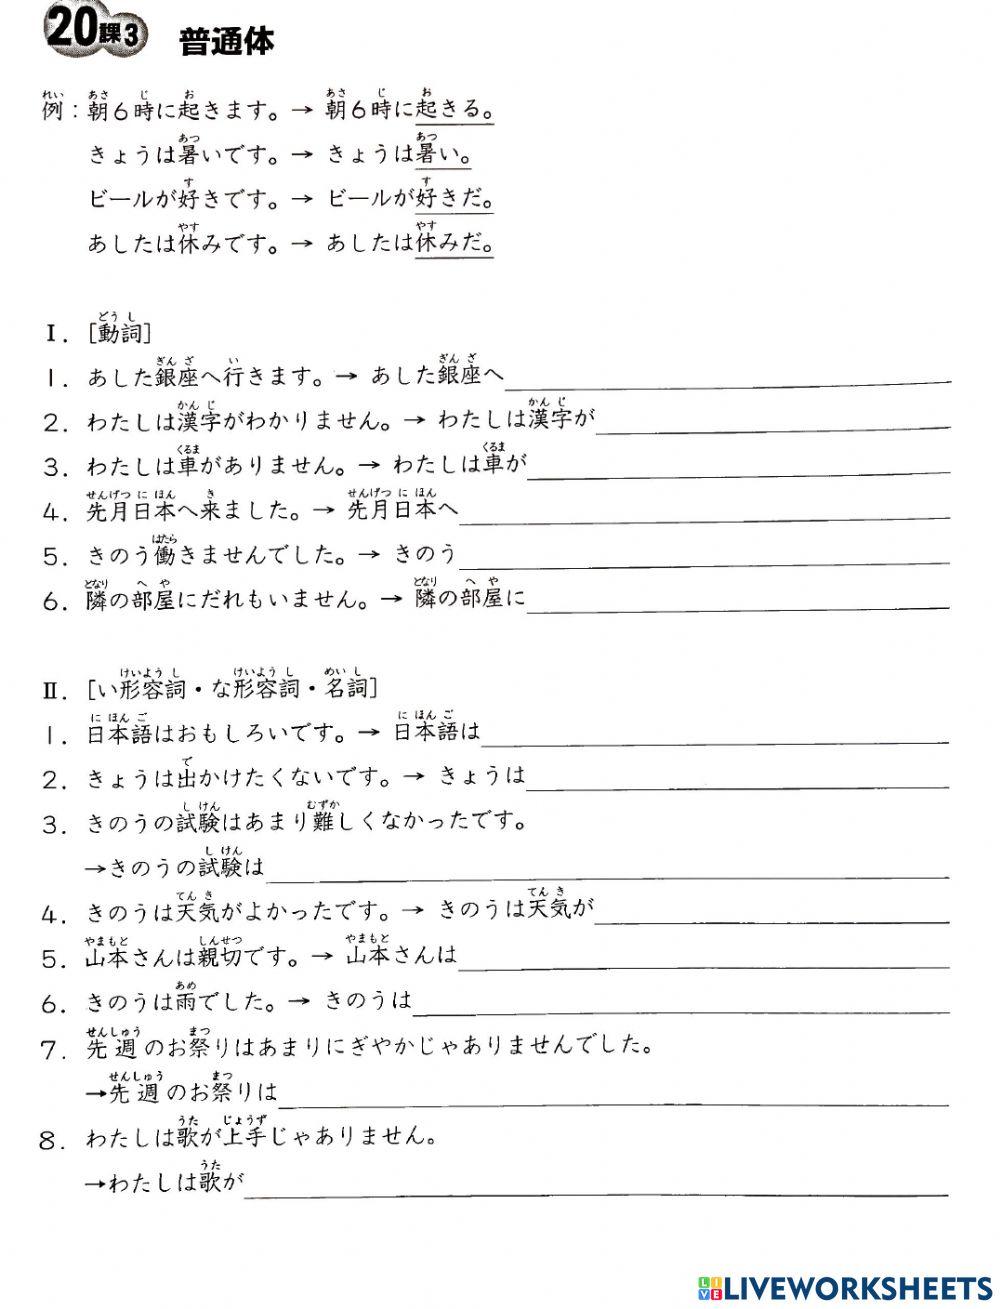 20課3 普通体
例：朝6時に起きます。→ 朝6時に起きる。
きょうは暑いです。→ きょうは暑い。
ビールが好きです。→ ビールが好きだ。
あしたは休みです。→ あしたは休みだ。
Ⅰ．[動詞]
1．あした銀座へ行きます。→ あした銀座へ
2．わたしは漢字がわかりません。→ わたしは漢字が
3．わたしは車がありません。→ わたしは車が
4．先月日本へ来ました。→ 先月日本へ
5．きのう働きませんでした。→ きのう
6．隣の部屋にだれもいません。→ 隣の部屋に
Ⅱ．[い形容詞・な形容詞・名詞]
1．日本語はおもしろいです。→ 日本語は
2．きょうは出かけたくないです。→ きょうは
3．きのうの試験はあまり難しくなかったです。
→きのうの試験は
4．きのうは天気がよかったです。→ きのうは天気が
5．山本さんは親切です。→ 山本さんは
6．きのうは雨でした。→ きのうは
7．先週のお祭りはあまりにぎやかじゃありませんでした。
→先週のお祭りは
8．わたしは歌が上手じゃありません。
→わたしは歌が
LIVEWORKSHEETS